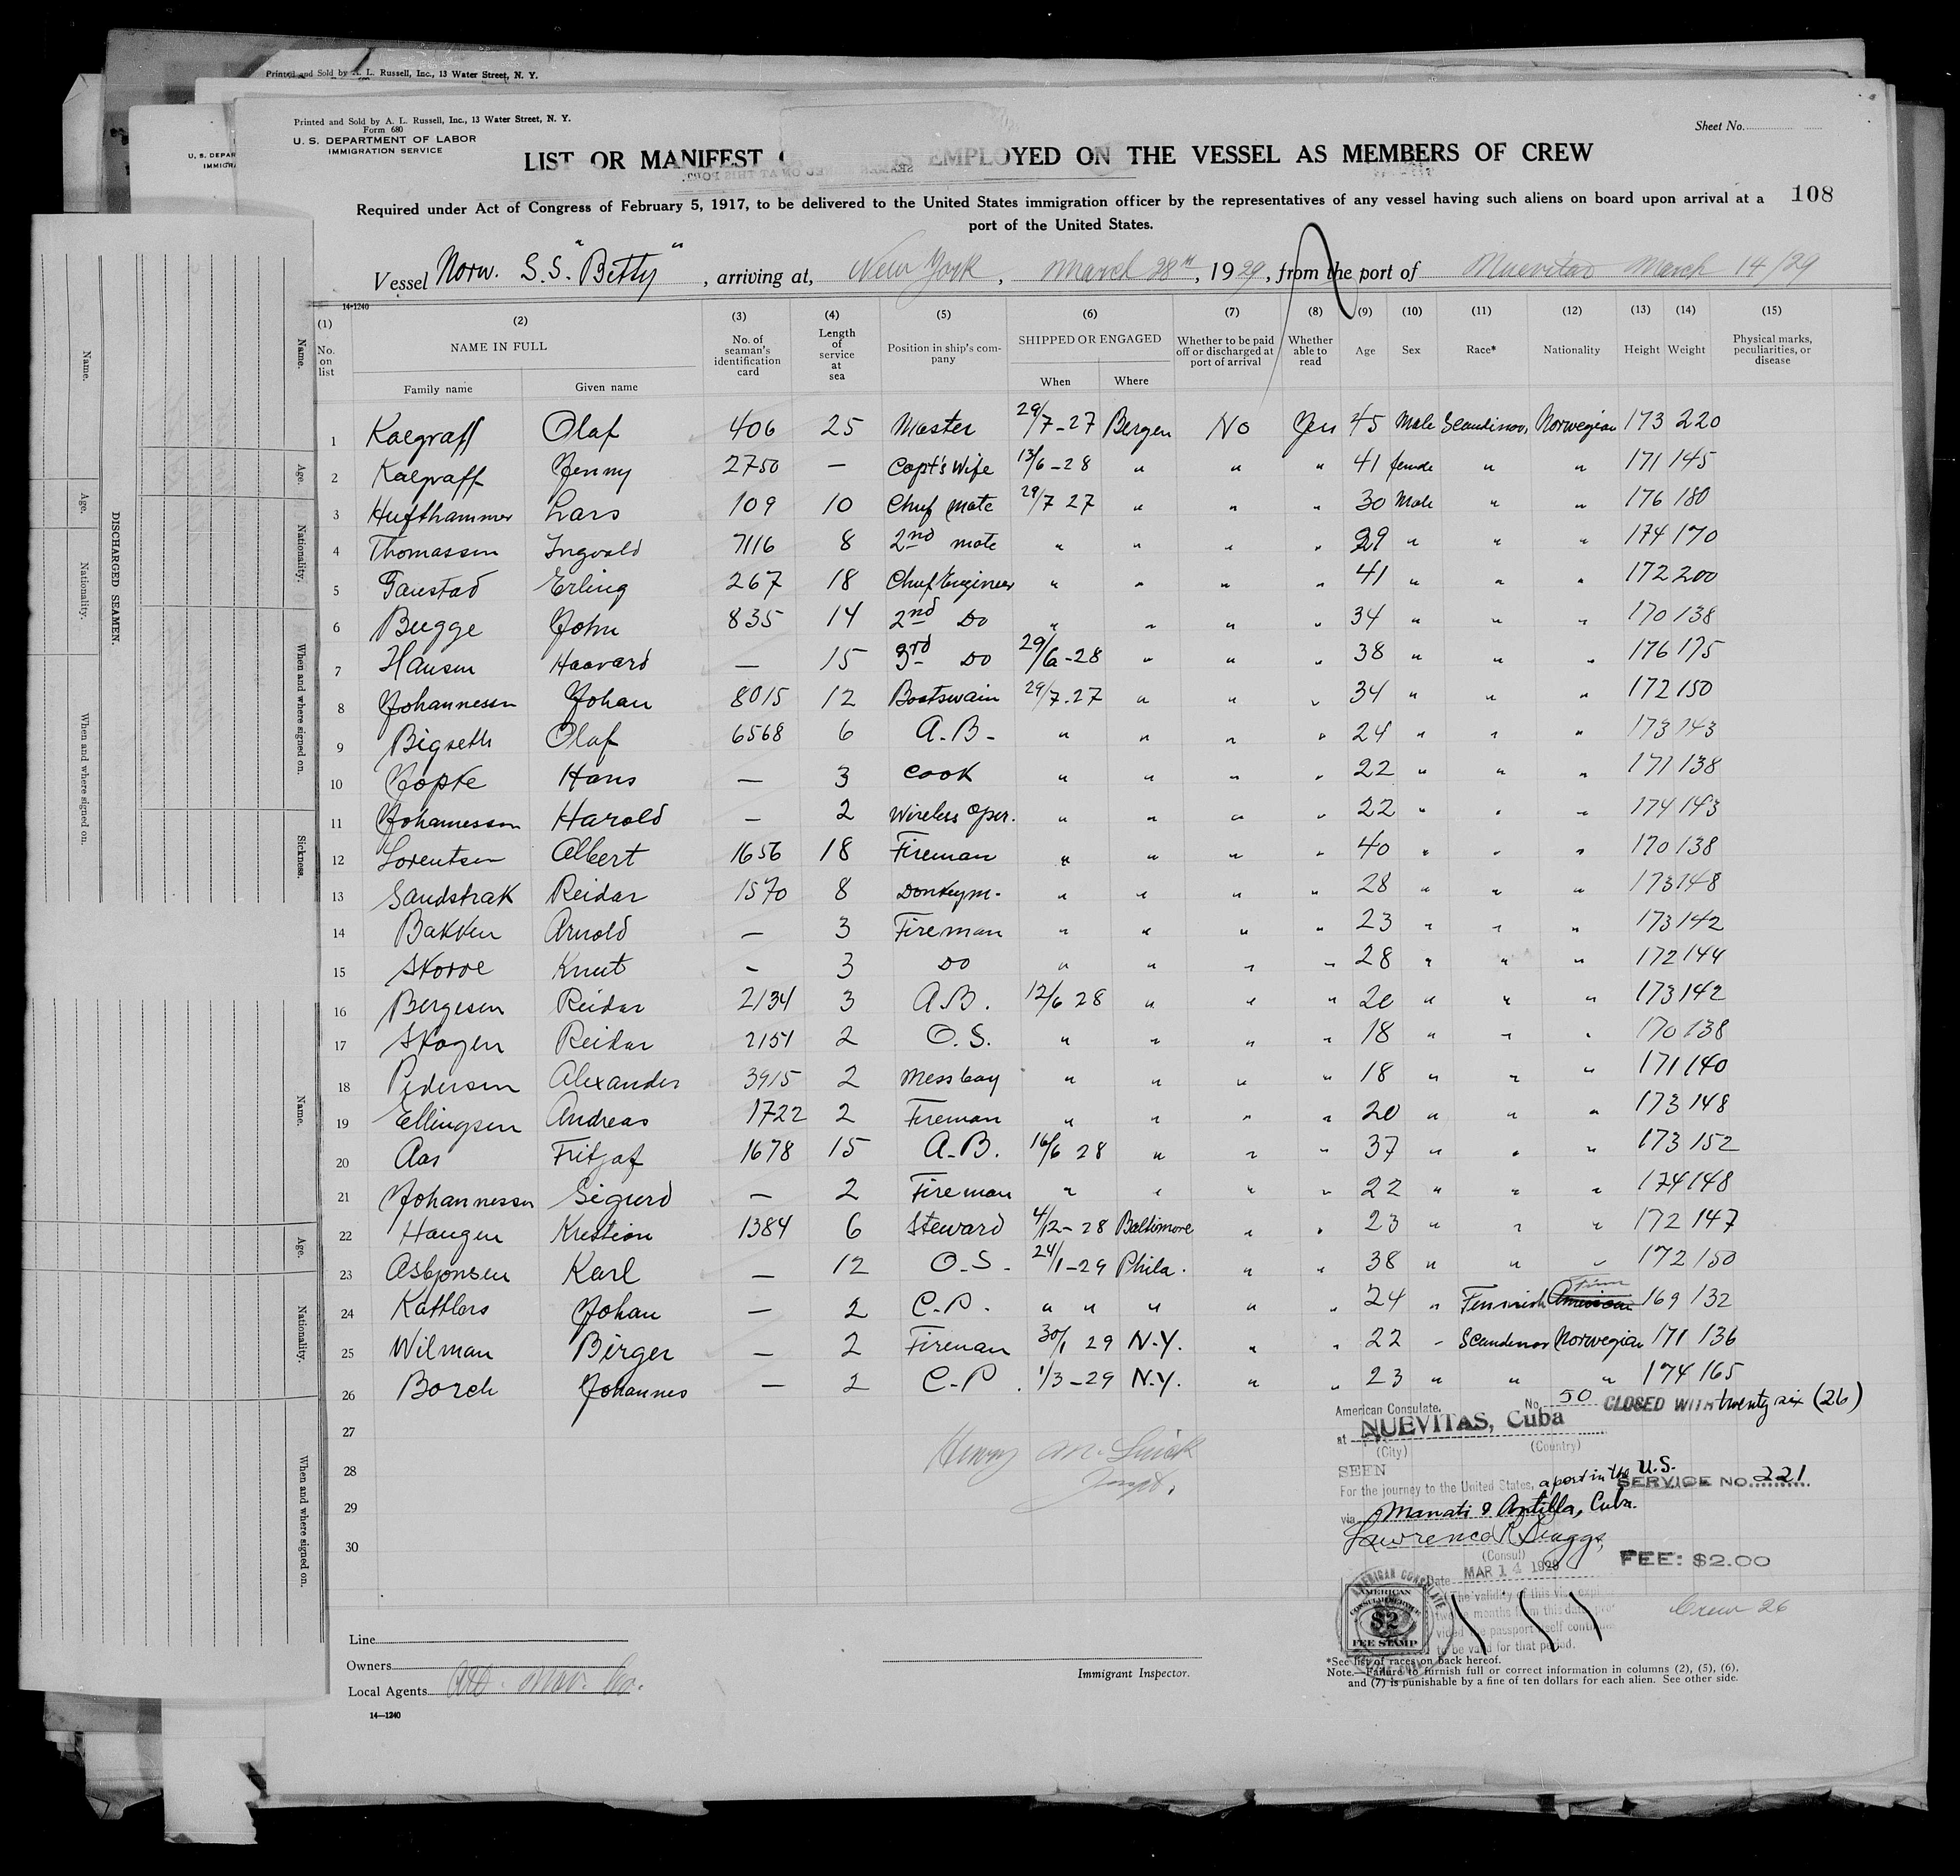 Printed and Sold by A. L. Russell, Inc., 13 Water Street, N. Y.
Printed and Sold by A. L. Russell, Inc., 13 Water Street, N. Y.
Form 680
U. S. DEPARTMENT OF LABOR
IMMIGRATION SERVICE
Sheet No.
LIST OR MANIFEST EMPLOYED ON THE VESSEL AS MEMBERS OF CREW
108
Required under Act of Congress of February 5, 1917, to be delivered to the United States immigration officer by the representatives of any vessel having such aliens on board upon arrival at a
port of the United States.
Vessel Norw. S.S. "Betty", arriving at, New York, March 28th, 1929, from the port of Nuevitas March 14/29
14-1240
(1) (2) (3) (4) (5) (6) (7) (8) (9) (10) (11) (12) (13) (14) (15)
No. on list NAME IN FULL No. of seaman's identification card Length of service at sea Position in ship's company SHIPPED OR ENGAGED Whether to be paid off or discharged at port of arrival Whether able to read Age Sex Race* Nationality Height Weight Physical marks, peculiarities, or disease
Family name Given name When Where
1 Kalgraff Olaf 406 25 Master 29/7-27 Bergen No Yes 45 Male Scandinav. Norwegian 173 220
2 Kalgraff Jenny 2750 — Capt's Wife 13/6-28 " " " 41 female " " 171 145
3 Hufthammer Lars 109 10 Chief Mate 29/7 27 " " " 30 Male " " 176 180
4 Thomassen Ingvald 7116 8 2nd mate " " " " 29 " " " 174 170
5 Taustad Erling 267 18 Chief Engineer " " " " 41 " " " 172 200
6 Bugge John 835 14 2nd Do " " " " 34 " " " 170 138
7 Hansen Haavard — 15 3rd Do 29/6-28 " " " 38 " " " 176 175
8 Johannessen Johan 8015 12 Boatswain 29/7-27 " " " 34 " " " 172 150
9 Bigseth Olaf 6568 6 A.B. " " " " 24 " " " 173 143
10 Jopke Hans — 3 Cook " " " " 22 " " " 171 138
11 Johannessen Harold — 2 Wireless Oper. " " " " 22 " " " 174 143
12 Lorentsen Albert 1656 18 Fireman " " " " 40 " " " 170 138
13 Sandstrak Reidar 1570 8 Donkeym. " " " " 28 " " " 173 148
14 Bakken Arnold — 3 Fireman " " " " 23 " " " 173 142
15 Skovoe Knut — 3 Do " " " " 28 " " " 172 144
16 Bergesen Reidar 2134 3 A.B. 12/6 28 " " " 20 " " " 173 142
17 Skogen Reidar 2151 2 O.S. " " " " 18 " " " 170 138
18 Pedersen Alexander 3915 2 Messboy " " " " 18 " " " 171 140
19 Ellingsen Andreas 1722 2 Fireman " " " " 20 " " " 173 148
20 Aas Fritjof 1678 15 A.B. 16/6 28 " " " 37 " " " 173 152
21 Johannessen Sigurd — 2 Fireman " " " " 22 " " " 174 148
22 Haugen Kristian 1384 6 Steward 4/12-28 Baltimore " " 23 " " " 172 147
23 Asbjonsen Karl — 12 O.S. 24/1-29 Phila. " " 38 " " " 172 150
24 Kattlors Johan — 2 C.P. " " " " " 24 " Finnish American Finn 169 132
25 Wilman Birger — 2 Fireman 30/1 29 N.Y. " " 22 " Scandinav Norwegian 171 136
26 Borch Johannes — 2 C.P. 1/3-29 N.Y. " " 23 " " " 174 165
27
28
29
30
American Consulate. No. 50 CLOSED WITH twenty six (26)
at NUEVITAS, Cuba
(City) (Country)
SEEN
For the journey to the United States, a port in the U.S.
SERVICE NO. 221
via Manati & Antilla, Cuba.
(Consul)
Date MAR 14 1929
FEE: $2.00
The validity of this visa expires
twelve months from this date pro-
vided the passport itself continues
to be valid for that period.
AMERICAN CONSULATE
AMERICAN
CONSULAR SERVICE
$2
FEE STAMP
Crew 26
Henry
Inspt.
Line
Owners
Local Agents
Immigrant Inspector.
*See list of races on back hereof.
Note.—Failure to furnish full or correct information in columns (2), (5), (6),
and (7) is punishable by a fine of ten dollars for each alien. See other side.
14—1240
U. S. DEPAR
IMMIGRA
DISCHARGED SEAMEN.
Name.
Age.
Nationality.
When and where signed on.
Name.
Age.
Nationality.
When and where signed on.
Sickness.
Name.
Age.
Nationality.
When and where signed on.